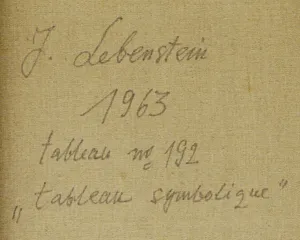 J. Lebenstein
1963
tableau nº 192
„tableau symbolique"